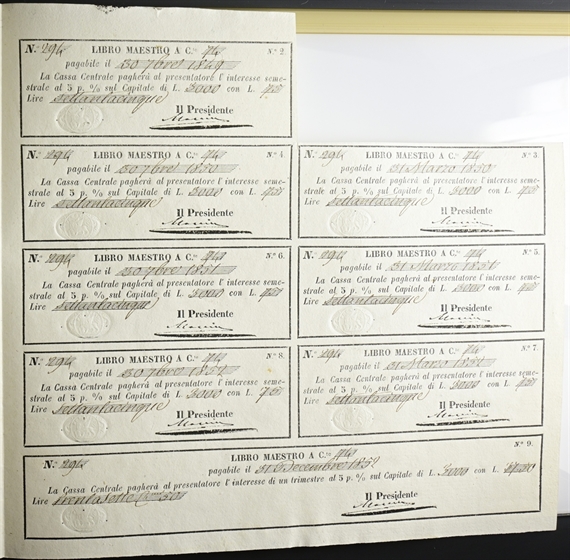 N.º 294 LIBRO MAESTRO A C.te 74 N.º 2.
pagabile il 30 7bre 1849
La Cassa Centrale pagherà al presentatore l'interesse seme-
strale al 5 p. % sul Capitale di L. 3000 con L. 75
Lire settantacinque
Il Presidente
N.º 294 LIBRO MAESTRO A C.te 74 N.º 4.
pagabile il 30 7bre 1850
La Cassa Centrale pagherà al presentatore l'interesse seme-
strale al 5 p. % sul Capitale di L. 3000 con L. 75
Lire settantacinque
Il Presidente
N.º 294 LIBRO MAESTRO A C.te 74 N.º 3.
pagabile il 31 Marzo 1850
La Cassa Centrale pagherà al presentatore l'interesse seme-
strale al 5 p. % sul Capitale di L. 3000 con L. 75
Lire settantacinque
Il Presidente
N.º 294 LIBRO MAESTRO A C.te 74 N.º 6.
pagabile il 30 7bre 1851
La Cassa Centrale pagherà al presentatore l'interesse seme-
strale al 5 p. % sul Capitale di L. 3000 con L. 75
Lire settantacinque
Il Presidente
N.º 294 LIBRO MAESTRO A C.te 74 N.º 5.
pagabile il 31 Marzo 1851
La Cassa Centrale pagherà al presentatore l'interesse seme-
strale al 5 p. % sul Capitale di L. 3000 con L. 75
Lire settantacinque
Il Presidente
N.º 294 LIBRO MAESTRO A C.te 74 N.º 8.
pagabile il 30 7bre 1852
La Cassa Centrale pagherà al presentatore l'interesse seme-
strale al 5 p. % sul Capitale di L. 3000 con L. 75
Lire settantacinque
Il Presidente
N.º 294 LIBRO MAESTRO A C.te 74 N.º 7.
pagabile il 31 Marzo 1852
La Cassa Centrale pagherà al presentatore l'interesse seme-
strale al 5 p. % sul Capitale di L. 3000 con L. 75
Lire settantacinque
Il Presidente
N.º 294 LIBRO MAESTRO A C.te 74 N.º 9.
pagabile il 31 Decembre 1852
La Cassa Centrale pagherà al presentatore l'interesse di un trimestre al 5 p. % sul Capitale di L. 3000 con L. 37:50
Lire trentasette Cmi 50
Il Presidente